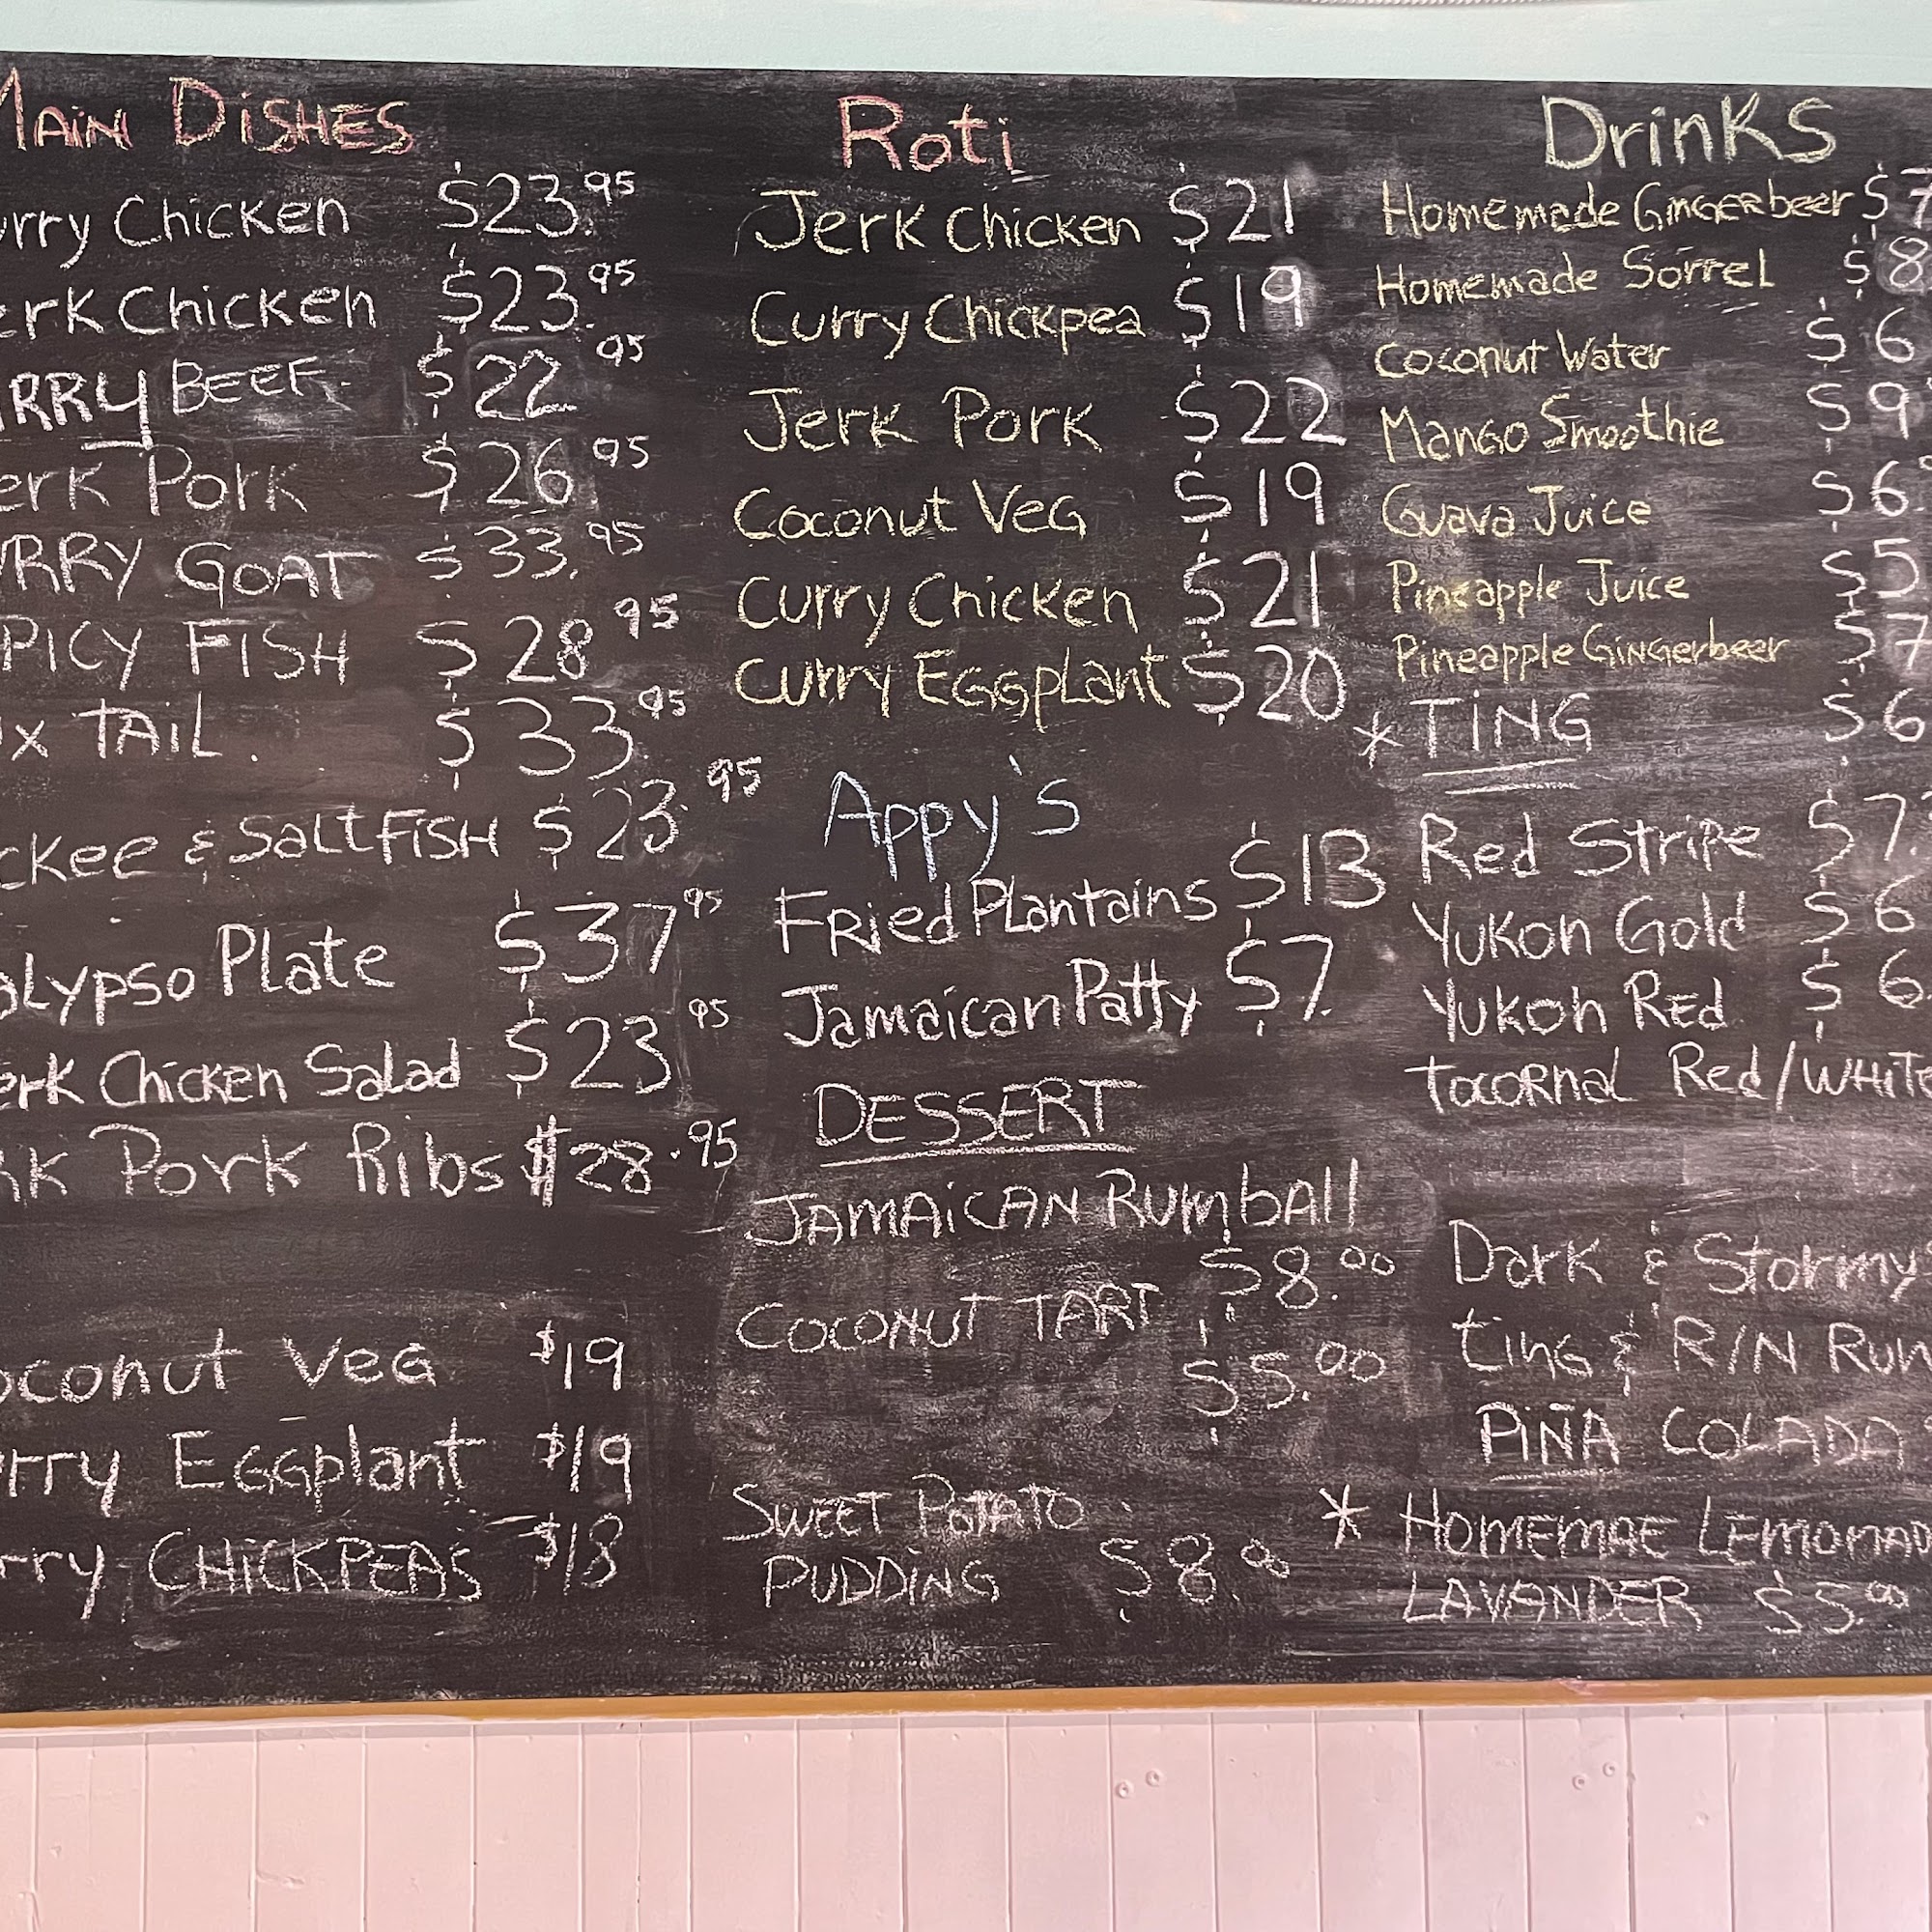 MAIN DISHES
urry Chicken $23.95
erk Chicken $23.95
URRY BEEF $22.95
erk Pork $26.95
URRY GOAT $33.95
PICY FISH $28.95
x TAIL. $33.95
ckee & Saltfish $23.95
alypso Plate $37.95
erk Chicken Salad $23.95
rk Pork Ribs $28.95
oconut Veg $19
urry Eggplant $19
rry CHICKPEAS $18
Roti
Jerk Chicken $21
Curry Chickpea $19
Jerk Pork $22
Coconut Veg $19
Curry Chicken $21
Curry Eggplant $20
Appy's
Fried Plantains $13
Jamaican Patty $7.
DESSERT
JAMAICAN RUMbAll
$8.00
COCONUT TART
$5.00
SWEET POTATO
PUDDING $8.00
Drinks
Homemade Gingerbeer $7
Homemade Sorrel $8
Coconut Water $6
Mango Smoothie $9
Guava Juice $6
Pineapple Juice $5
Pineapple Gingerbeer $7
* TING $6
Red Stripe $7.
Yukon Gold $6
Yukon Red $6
tocornal Red/WHITE
Dark & Stormy
ting & R/N Rum
PIÑA COLADA
* HOMEMAE LEMONAD
LAVANDER $5.00